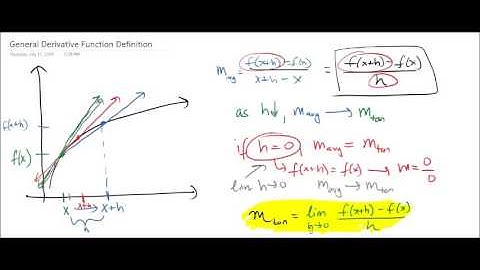 General Derivative Function Definition
m_avg = f(x+h) - f(x) / x+h - x = f(x+h) - f(x) / h
as h↓, m_avg → m_tan
if h=0, m_avg = m_tan
↳ f(x+h) = f(x) → m = 0/0
lim h→0 m_avg → m_tan
m_tan = lim h→0 f(x+h) - f(x) / h
f(x+h)
f(x)
x x+h x+h
h